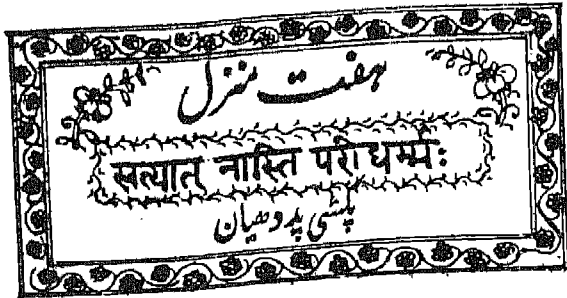 ہفت منزل
सत्यात् नास्ति परोधर्म्मः
پشی پد دھیان